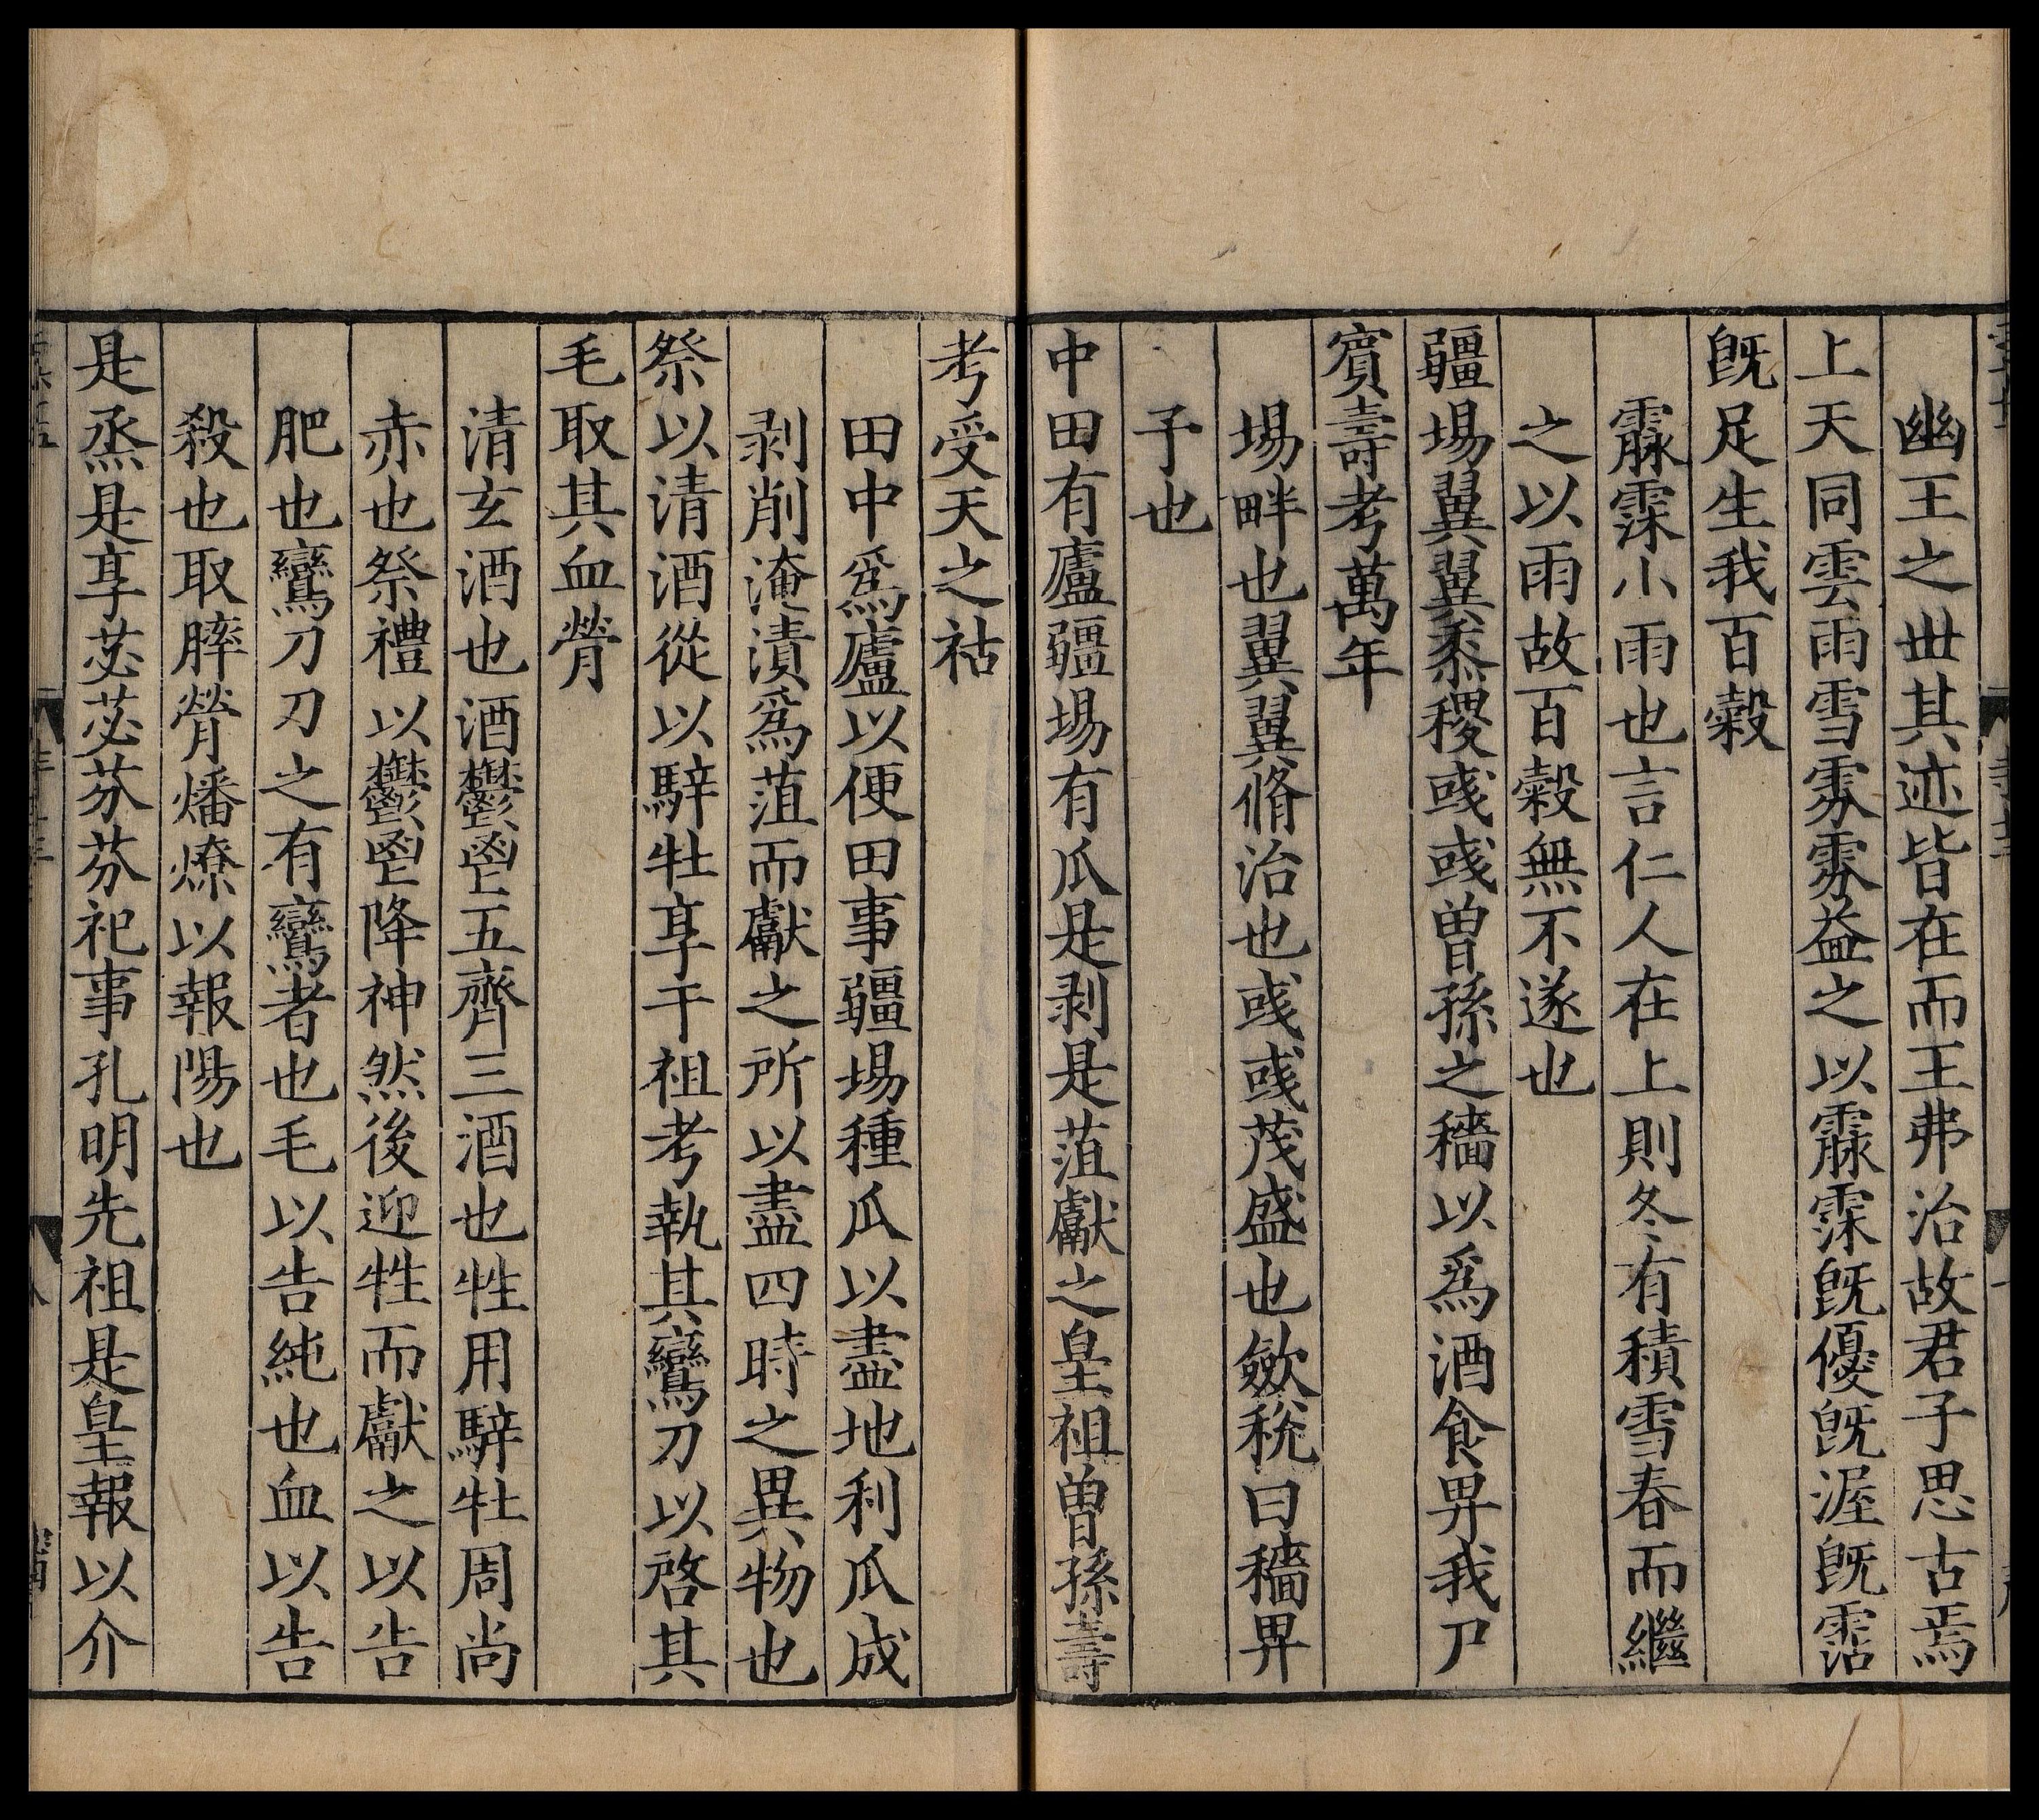 幽王之丗其迹皆在而王弗治故君子思古焉
上天同雲雨雪雰雰益之以霡霂既優既渥既霑
既足生我百穀
霡霂小雨也言仁人在上則冬有積雪春而繼
之以雨故百穀無不遂也
疆埸翼翼黍稷彧彧曾孫之穡以爲酒食畀我尸
賓壽考萬年
埸畔也翼翼脩治也彧彧茂盛也斂稅曰穡畀
予也
中田有廬疆埸有瓜是剥是菹獻之皇祖曾孫壽
考受天之祜
田中爲廬以便田事疆埸種瓜以盡地利瓜成
剥削淹漬爲菹而獻之所以盡四時之異物也
祭以清酒從以騂牡享于祖考執其鸞刀以啓其
毛取其血膋
清玄酒也酒鬱鬯五齊三酒也牲用騂牡周尚
赤也祭禮以鬱鬯降神然後迎牲而獻之以告
肥也鸞刀刀之有鸞者也毛以告純也血以告
殺也取膟膋燔燎以報陽也
是烝是享苾苾芬芬祀事孔明先祖是皇報以介